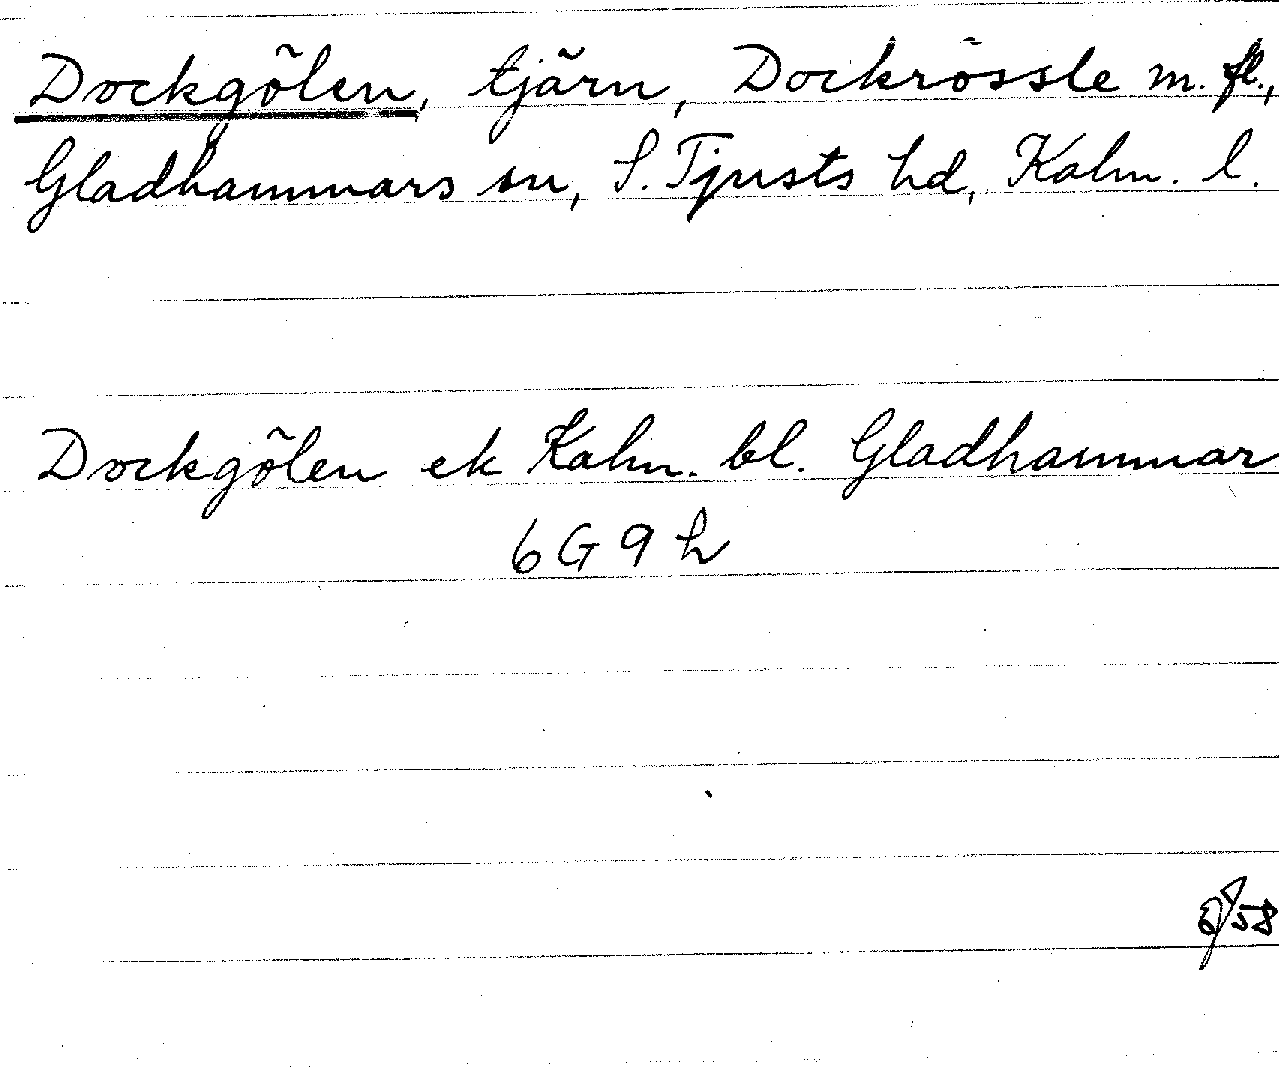 Dockgölen, tjärn, Dockrössle m. fl.,
Gladhammars sn, S. Tjusts hd, Kalm. l.
Dockgölen ek Kalm. bl. Gladhammar
6G9h